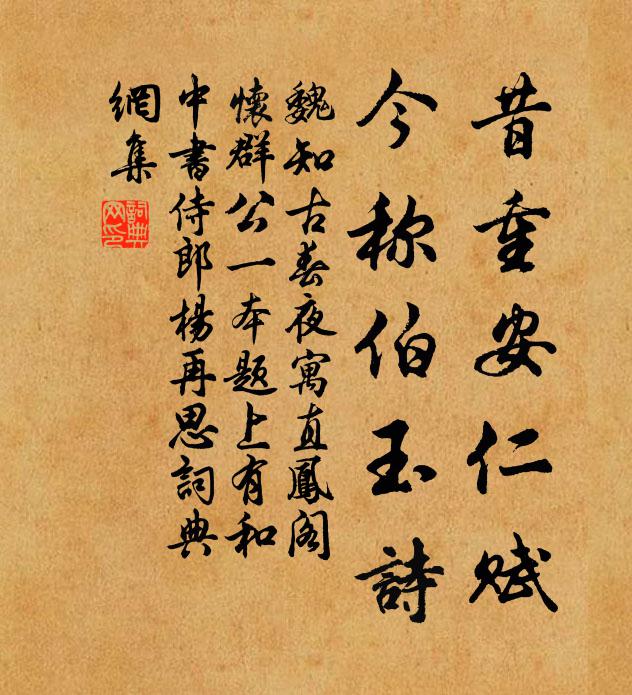 昔重安仁赋
今称伯玉詩
魏知古春夜寓直鳳阁
懷群公一本题上有和
中書侍郎楊再思詞典
網集
詞典
网印